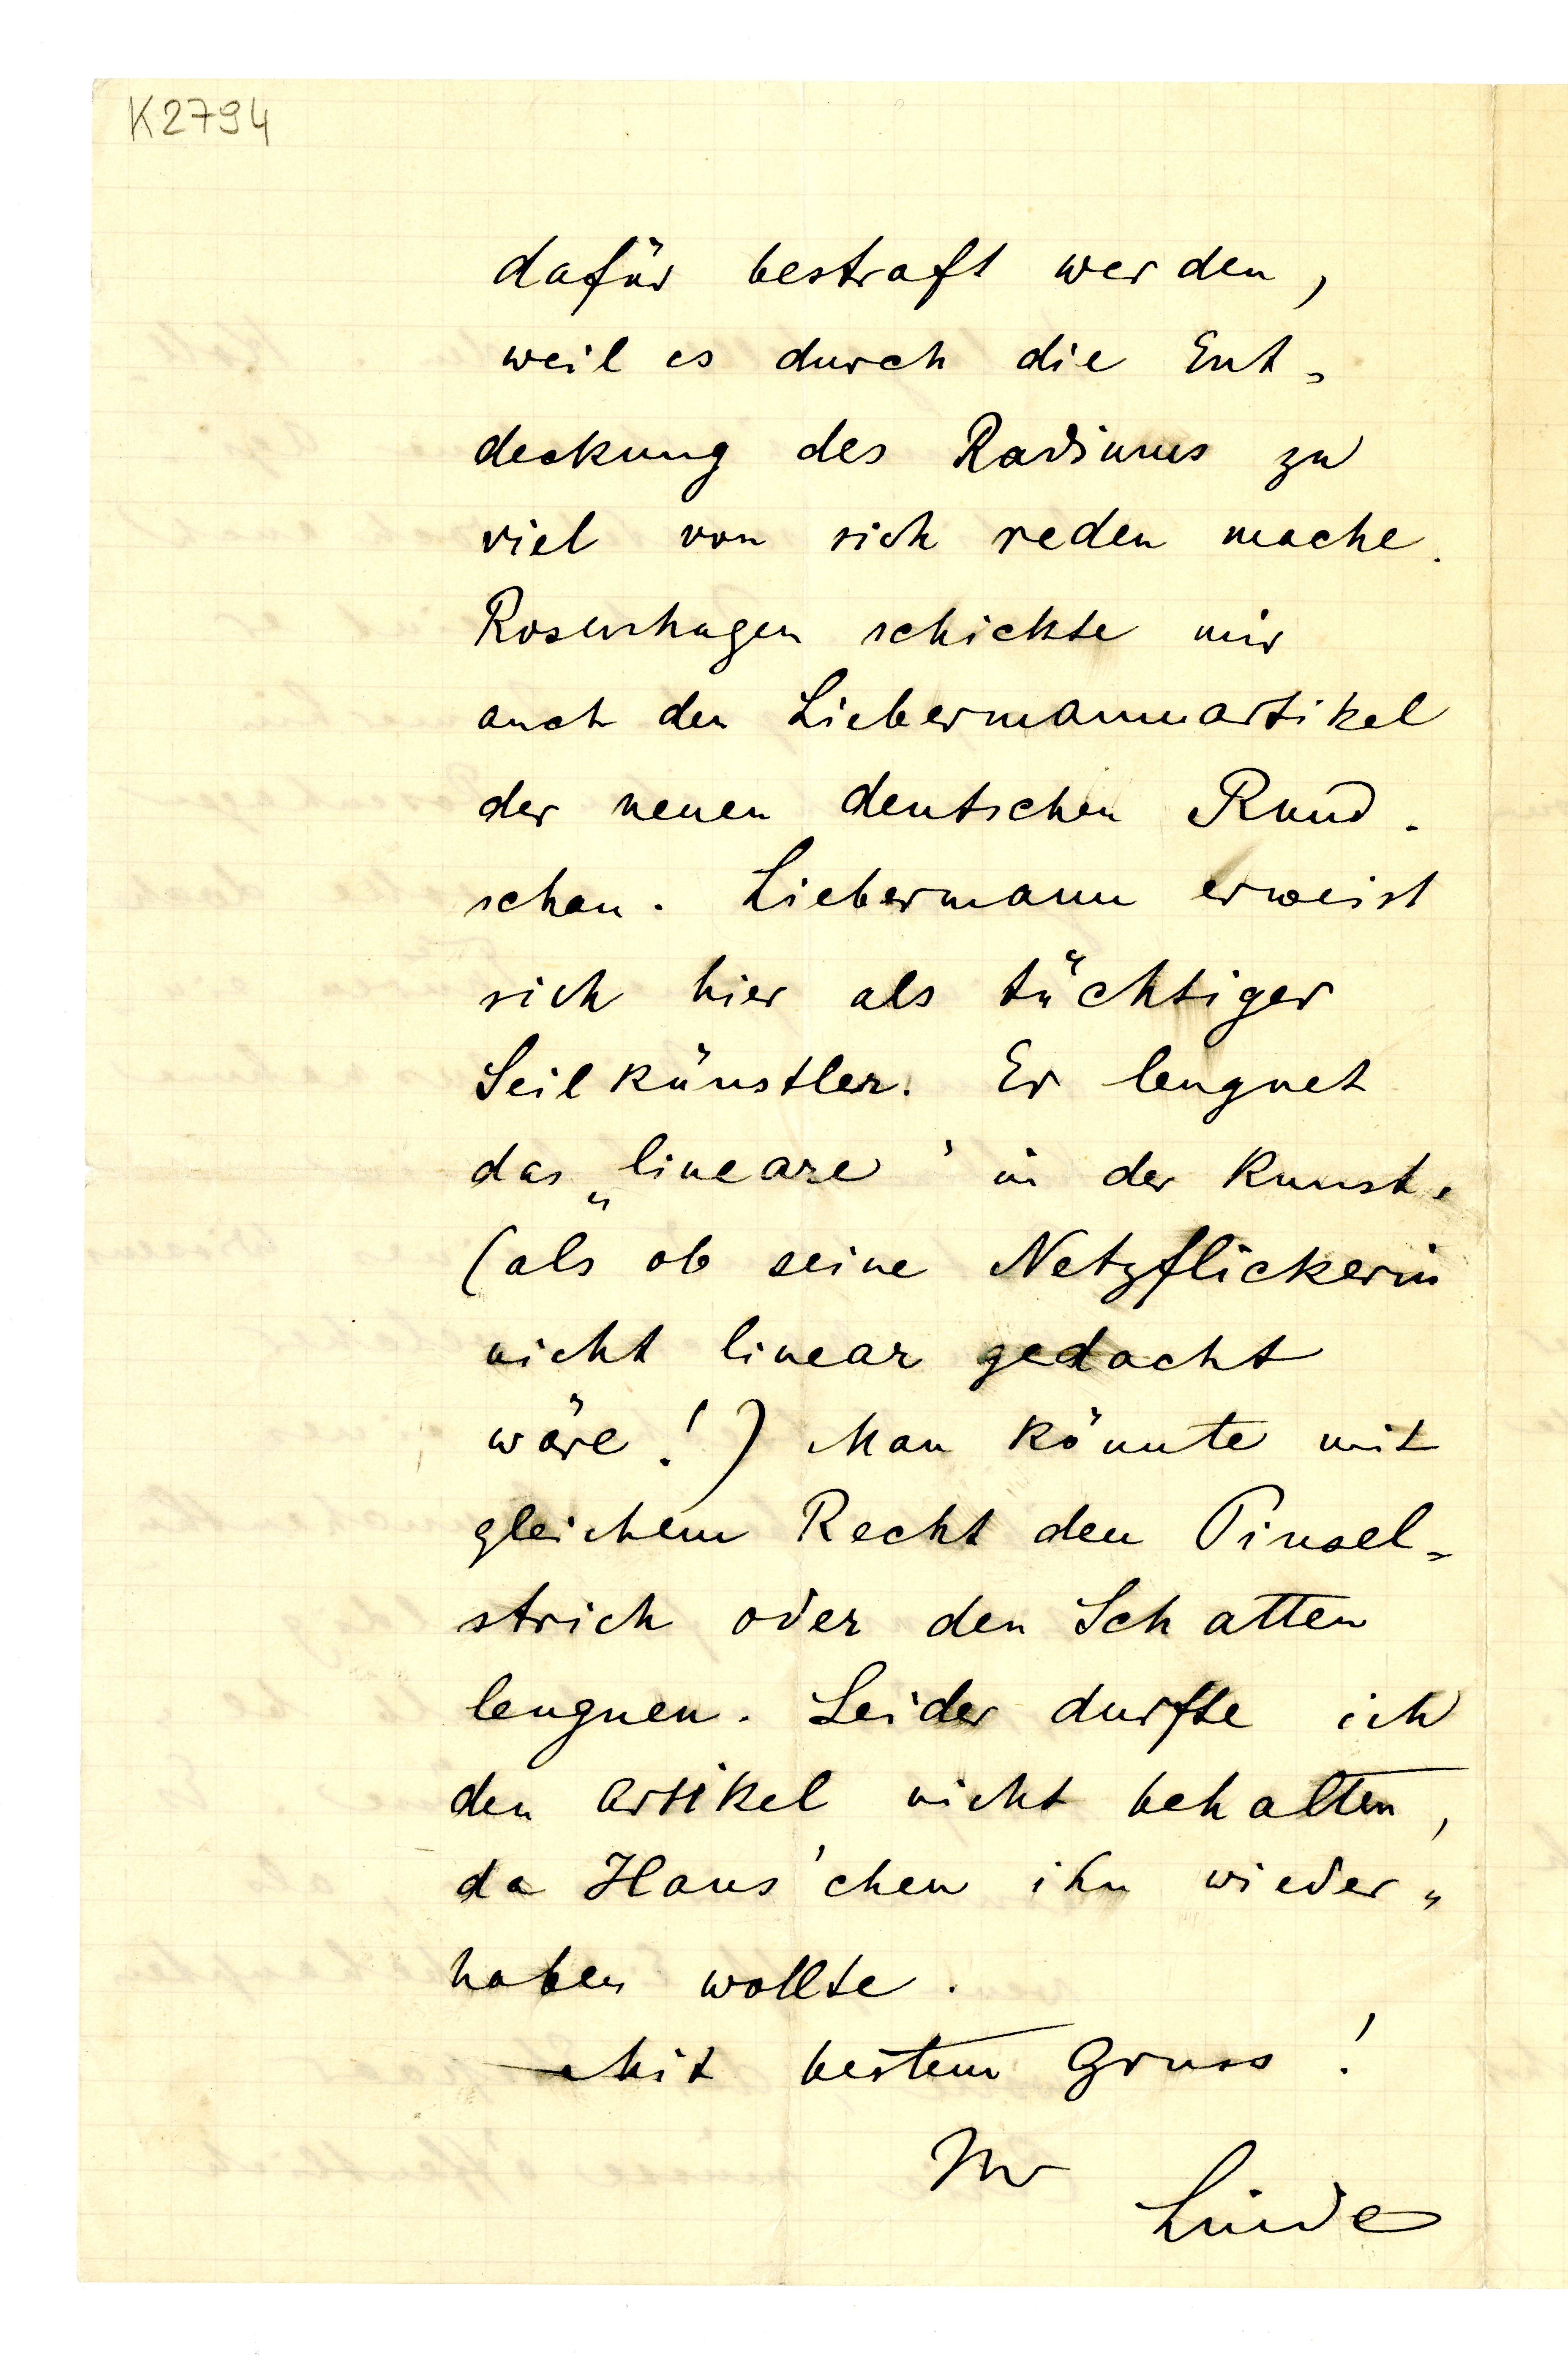 K2794
dafür bestraft werden,
weil es durch die Ent=
deckung des Radiums zu
viel von sich reden mache.
Rosenhagen schickte mir
auch den Liebermannartikel
der neuen deutschen Rund-
schau. Liebermann erweist
sich hier als tüchtiger
Seilkünstler. Er leugnet
das „lineare" in der Kunst.
(als ob seine Netzflickerin
nicht linear gedacht
wäre!) Man könnte mit
gleichem Recht den Pinsel=
strich oder den Schatten
leugnen. Leider durfte ich
den Artikel nicht behalten,
da Hans'chen ihn wieder=
haben wollte.
Mit bestem Gruss!
Ihr
Linde